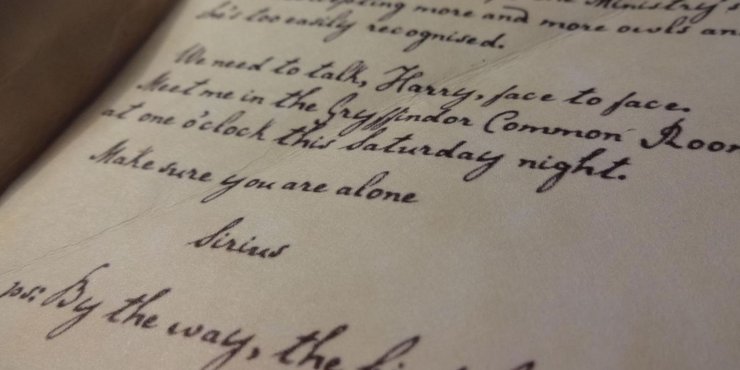 more and more owls an
He's too easily recognised.
We need to talk, Harry, face to face.
Meet me in the Gryffindor Common Room
at one o'clock this Saturday night.
Make sure you are alone
Sirius
ps: By the way, the